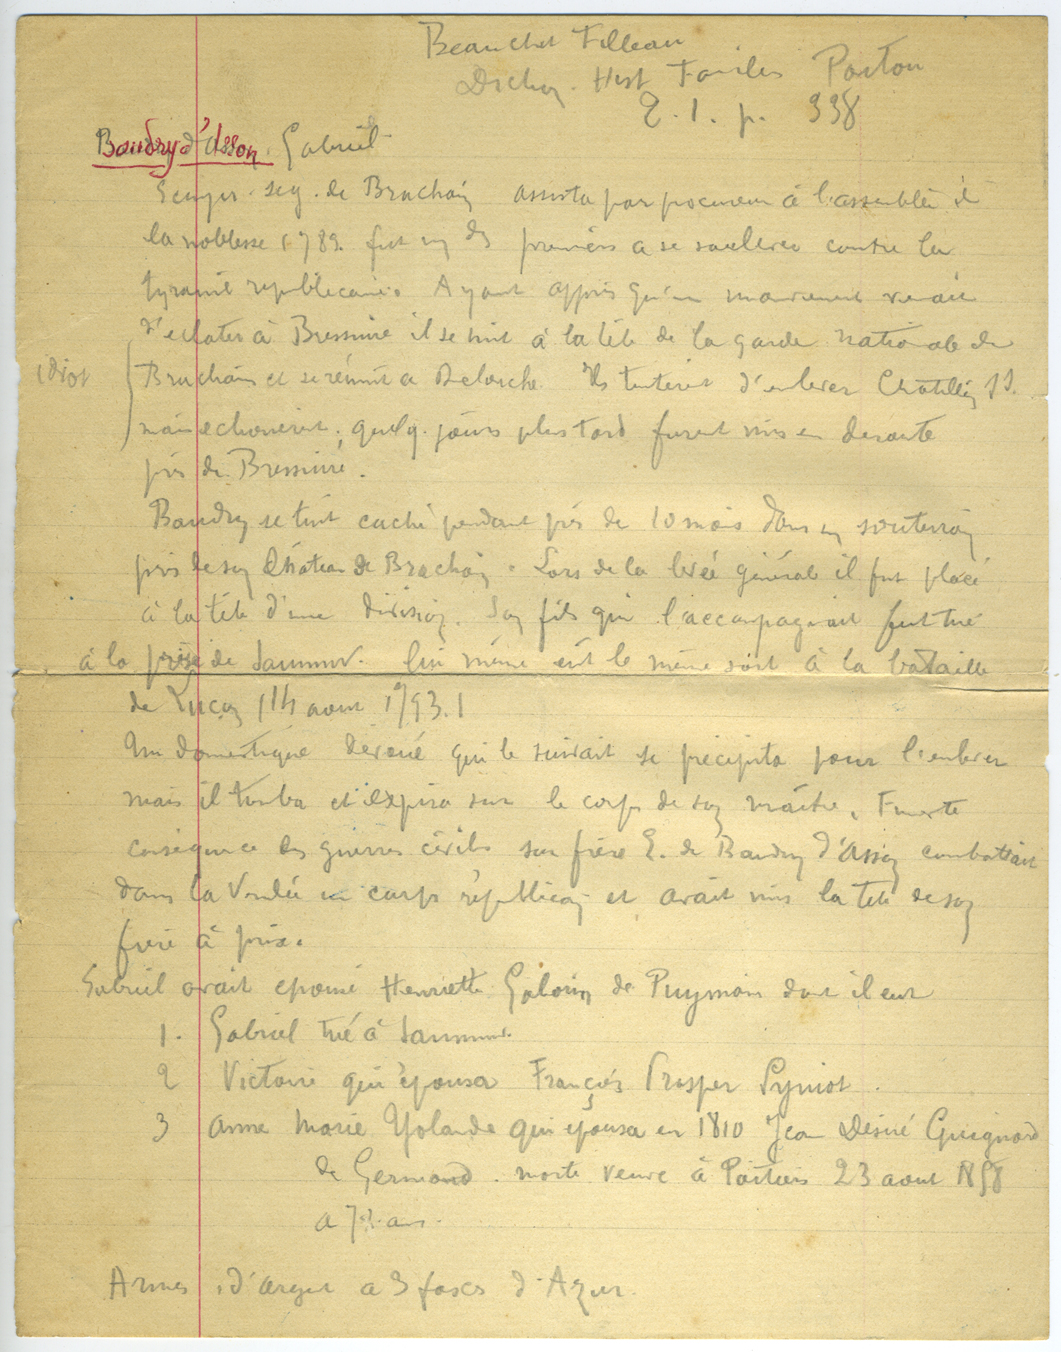 Beauchet Filleau
Diction. Hist Familles Poitou
T. 1. p. 338
Baudry d'Asson. Gabriel
Ecuyer seg. de Brachain assista par procureur à l'assemblée de
la noblesse 1789. fut un des premiers a se soulever contre la
tyrannie republicaine. Ayant appris qu'un mouvement venait
d'eclater à Bressuire il se mit à la tête de la garde nationale de
idiot
Brachain et se réunit a Delouche. Ils tentèrent d'enlever Chatillon s/S.
mais echouèrent; quelq. jours plus tard furent mis en deroute
près de Bressuire.
Baudry se tint caché pendant près de 10 mois dans un souterrain
près de son Château de Brachain. Lors de la levée générale il fut placé
à la tête d'une division. Son fils qui l'accompagnait fut tué
à la prise de Saumur. lui même eût le même sort à la bataille
de Luçon (14 aout 1793.)
Un domestique dévoué qui le suivait se precipita pour l'enlever
mais il tomba et expira sur le corps de son maître. Funeste
consequence des guerres civiles son frère E. de Baudry d'Asson combattait
dans la Vendée un corps républicain et avait mis la tête de son
frere à prix.
Gabriel avait epousé Henriette Gaborin de Puymain dont il eut
1. Gabriel tué à Saumur.
2 Victoire qui épousa François Prosper Pyniot.
3 Anne Marie Yolande qui épousa en 1810 Jean Désiré Guignard
de Germond. morte veuve à Poitiers 23 aout 1858
a ans.
Armes, d'argent a 3 fasces d'Azur.